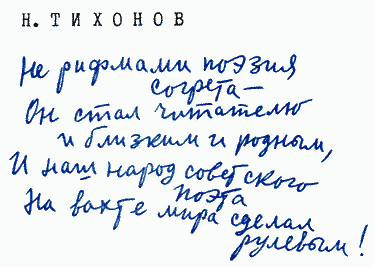 Н. ТИХОНОВ
Не рифмами поэзия
согрета—
Он стал читателю
и близким и родным,
И наш народ советского
поэта
На вахте мира сделал
рулевым!